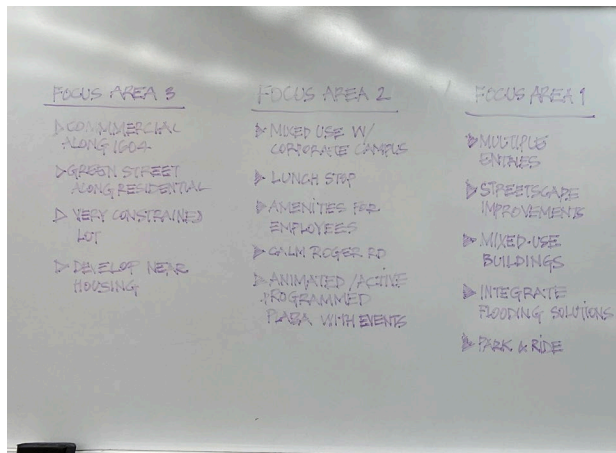 FOCUS AREA 3
COMMMERCIAL
ALONG 1604
GREEN STREET
ALONG RESIDENTIAL
VERY CONSTRAINED
LOT
DEVELOP NEAR
HOUSING
FOCUS AREA 2
MIXED USE W/
CORPORATE CAMPUS
LUNCH STOP
AMENITES FOR
EMPLOYEES
CALM ROGER RD
ANIMATED/ACTIVE
PROGRAMMED
PLAZA WITH EVENTS
FOCUS AREA 1
MULTIPLE
ENTRIES
STREETSCAPE
IMPROVEMENTS
MIXED-USE
BUILDINGS
INTEGRATE
FLOODING SOLUTIONS
PARK & RIDE